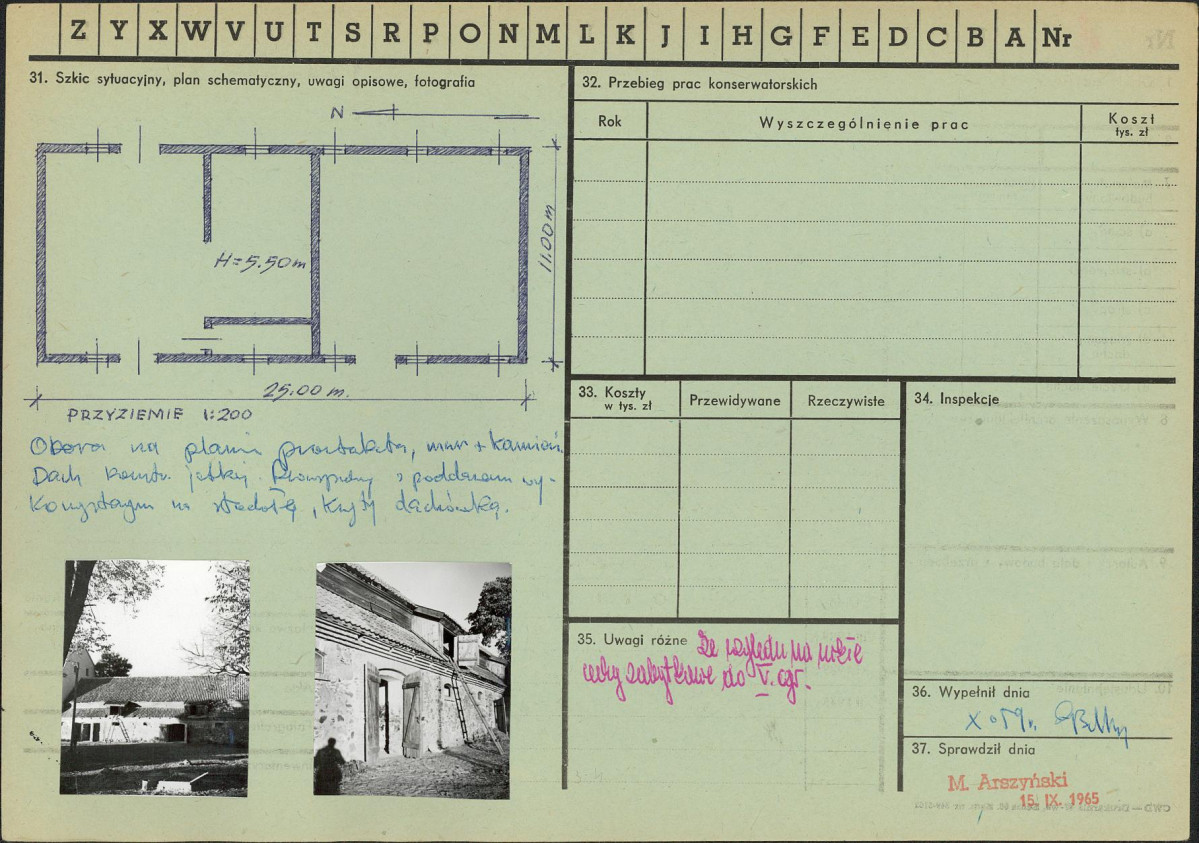 Z Y X W V U T S R P O N M L K J I H G F E D C B A Nr
31. Szkic sytuacyjny, plan schematyczny, uwagi opisowe, fotografia
N
H=5.50m
11.00 m
25.00 m.
PRZYZIEMIE 1:200
Obora na planie prostokąta, mur z kamieni.
Dach konstr. jętkej. Dwuspadowy z poddaszem wy-
korzystanym na stodołę, kryty dachówką.
32. Przebieg prac konserwatorskich
Rok
Wyszczególnienie prac
Koszt
tys. zł
33. Koszty
w tys. zł
Przewidywane
Rzeczywiste
34. Inspekcje
35. Uwagi różne Ze względu na nikłe
cechy zabytkowe do V. gr.
36. Wypełnił dnia
X 59r.
37. Sprawdził dnia
M. Arszyński
15. IX. 1965